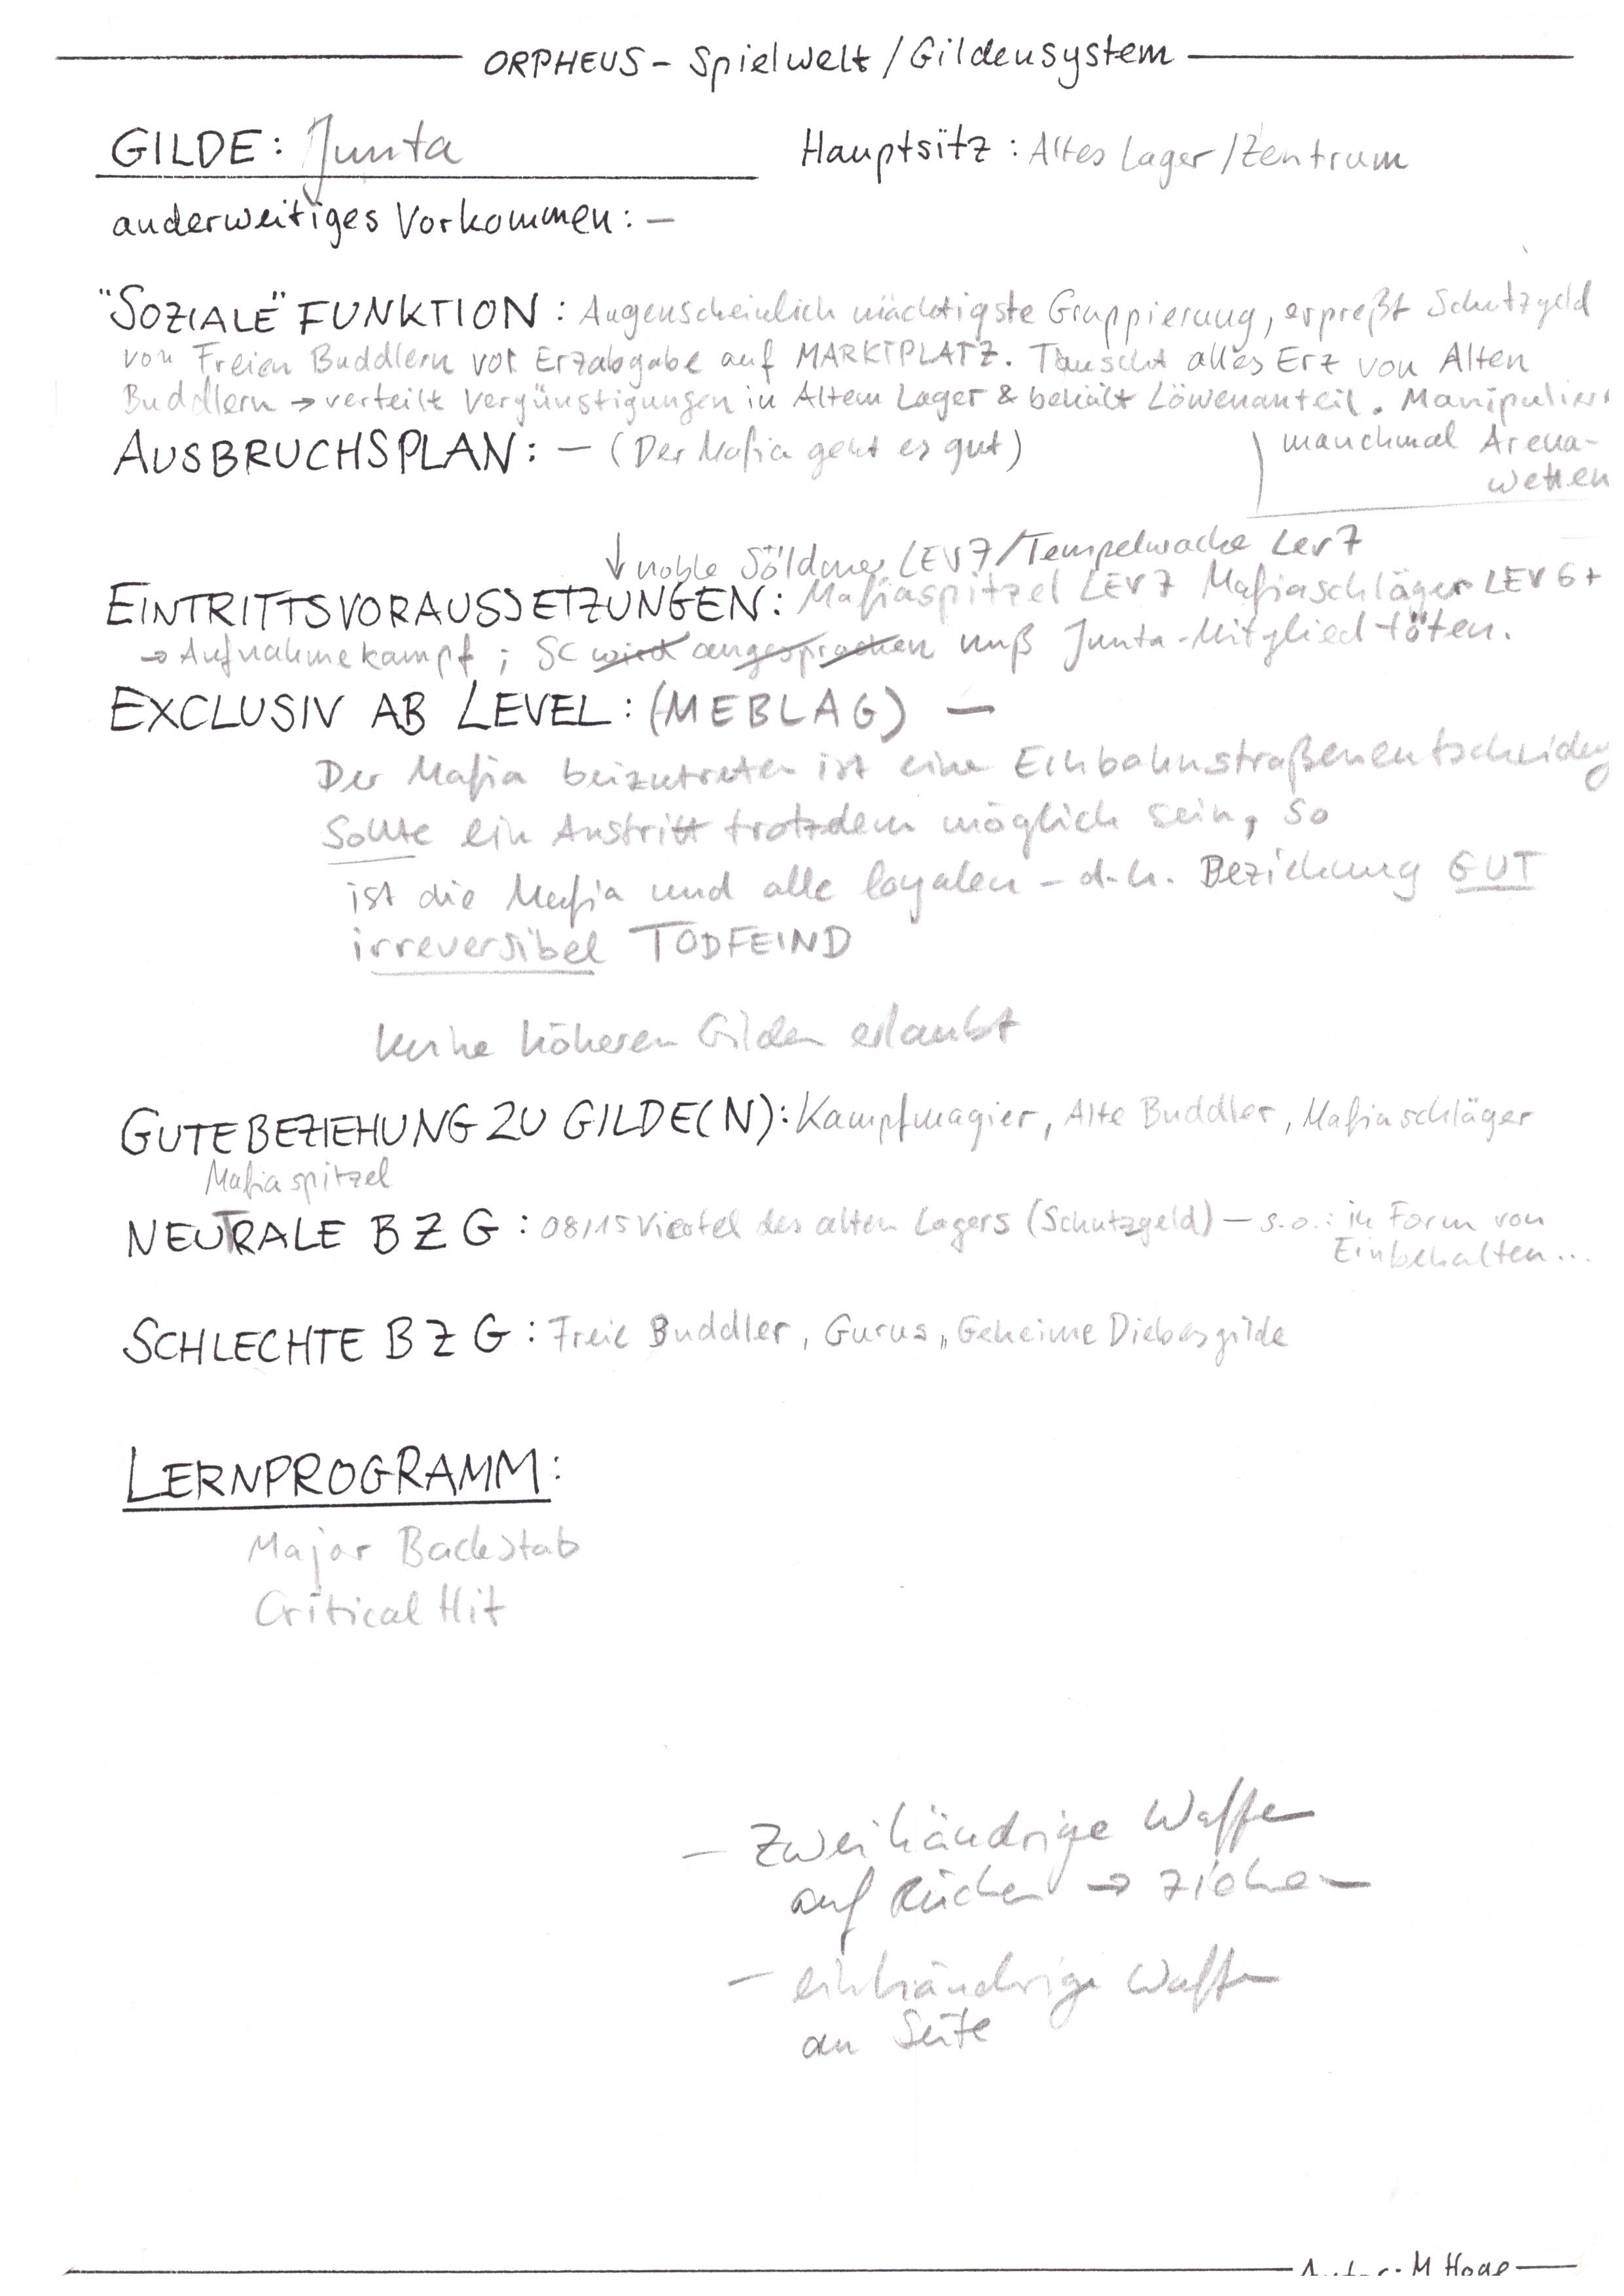 ORPHEUS - Spielwelt / Gildensystem
GILDE: Junta Hauptsitz: Altes Lager / Zentrum
anderweitiges Vorkommen: –
"SOZIALE" FUNKTION: Augenscheinlich mächtigste Gruppierung, erpreßt Schutzgeld
von Freien Buddlern vor Erzabgabe auf MARKTPLATZ. Tauscht alles Erz von Alten
Buddlern → verteilt Vergünstigungen in Altem Lager & behält Löwenanteil. Manipuliert
AUSBRUCHSPLAN: – (Der Mafia geht es gut) manchmal Arena-
wetten
↓ noble Söldner LEV 7 / Tempelwache Lev 7
EINTRITTSVORAUSSETZUNGEN: Mafiaspitzel LEV 7 Mafiaschläger LEV 6+
→ Aufnahmekampf; SC wird angesprochen muß Junta-Mitglied töten.
EXCLUSIV AB LEVEL: (MEBLAG) –
Der Mafia beizutreten ist eine Einbahnstraßenentscheidung
Sollte ein Austritt trotzdem möglich sein, so
ist die Mafia und alle loyalen - d.h. Beziehung GUT
irreversibel TODFEIND
keine höheren Gilden erlaubt
GUTE BEZIEHUNG ZU GILDE(N): Kampfmagier, Alte Buddler, Mafiaschläger
Mafiaspitzel
NEUTRALE BZG: 08/15 Viertel des alten Lagers (Schutzgeld) – s.o.: in Form von
Einbehalten...
SCHLECHTE BZG: Freie Buddler, Gurus, Geheime Diebesgilde
LERNPROGRAMM:
Major Backstab
Critical Hit
– Zweihändrige Waffen
auf Rücken → ziehen
– einhändrige Waffen
an Seite
Autor: M. Hoge